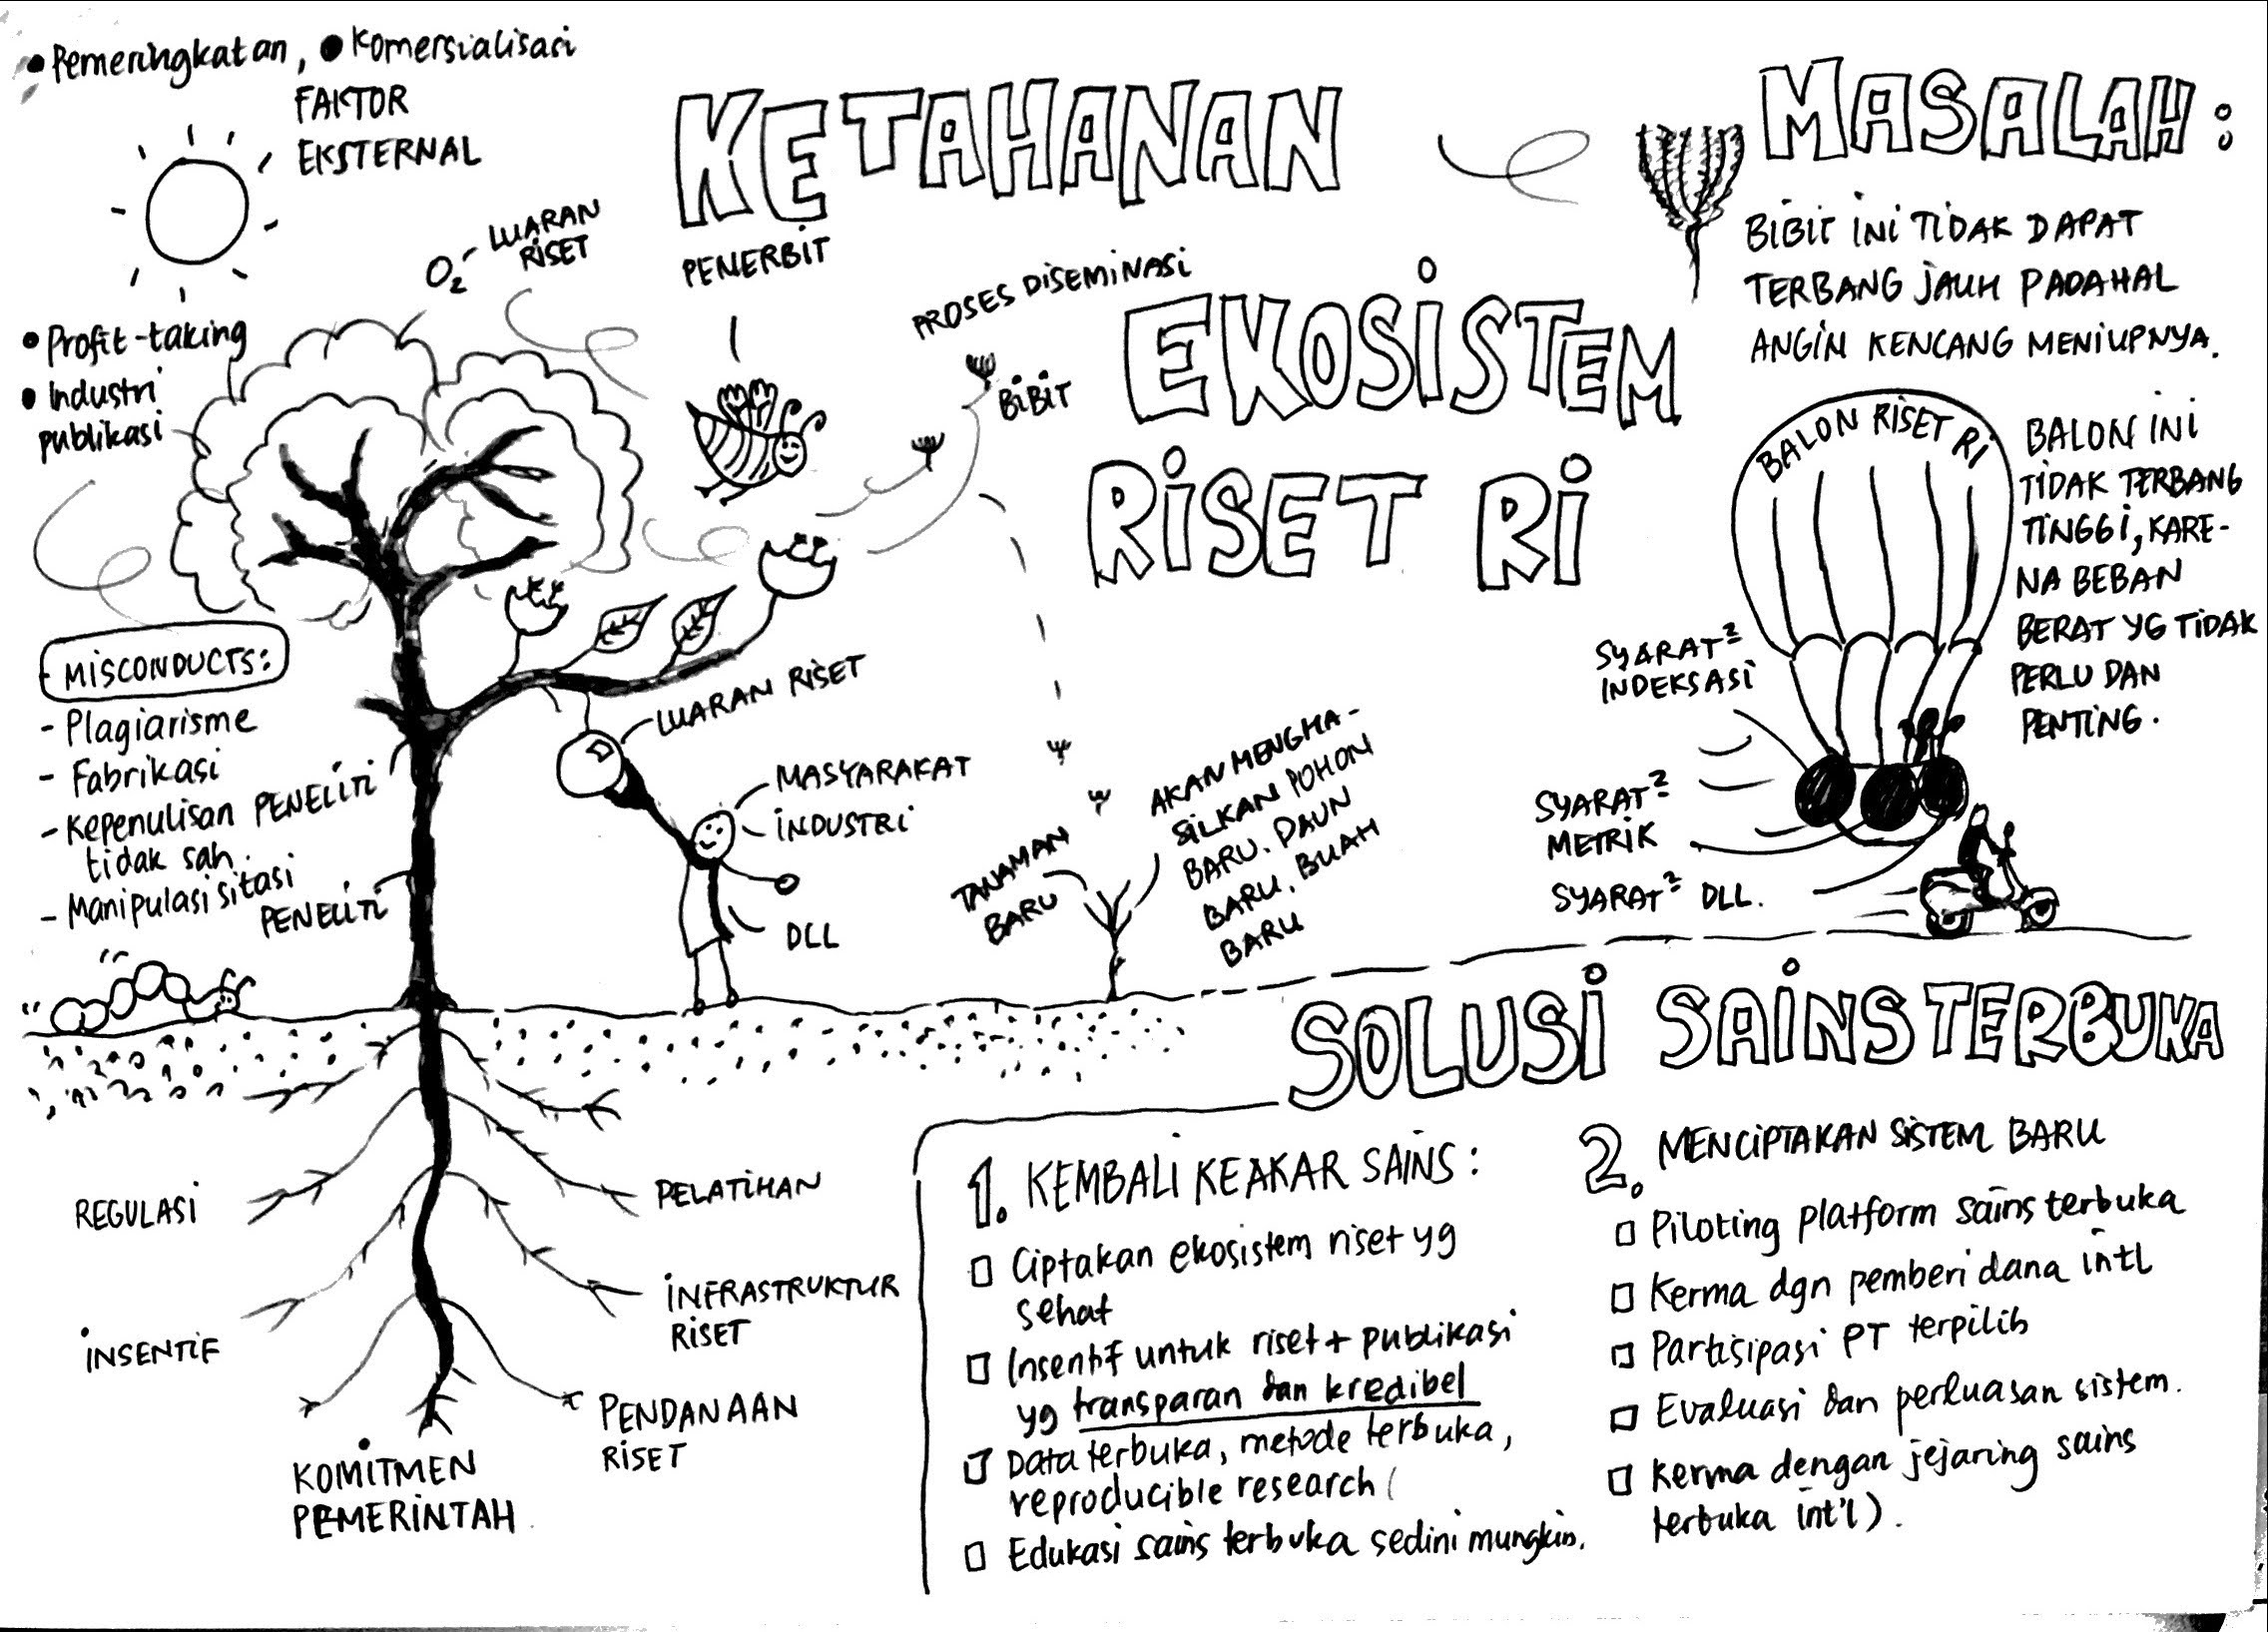 • Pemeringkatan, • Komersialisasi
FAKTOR
EKSTERNAL
• Profit-taking
• Industri
publikasi
O₂
LUARAN
RISET
KETAHANAN
EKOSISTEM
RISET RI
PENERBIT
PROSES DISEMINASI
BIBIT
MISCONDUCTS:
- Plagiarisme
- Fabrikasi
- Kepenulisan
tidak sah
- Manipulasi sitasi
PENELITI
PENELITI
LUARAN RISET
MASYARAKAT
INDUSTRI
DLL
TANAMAN
BARU
AKAN MENGHA-
SILKAN POHON
BARU. DAUN
BARU, BUAH
BARU
REGULASI
INSENTIF
KOMITMEN
PEMERINTAH
PELATIHAN
INFRASTRUKTUR
RISET
PENDANAAN
RISET
MASALAH:
BIBIT INI TIDAK DAPAT
TERBANG JAUH PADAHAL
ANGIN KENCANG MENIUPNYA.
BALON RISET RI
BALON INI
TIDAK TERBANG
TINGGI, KARE-
NA BEBAN
BERAT YG TIDAK
PERLU DAN
PENTING.
SYARAT²
INDEKSASI
SYARAT²
METRIK
SYARAT² DLL.
SOLUSI SAINS TERBUKA
1. KEMBALI KE AKAR SAINS:
□ Ciptakan ekosistem riset yg
sehat
□ Insentif untuk riset + publikasi
yg transparan dan kredibel
□ Data terbuka, metode terbuka,
reproducible research (
□ Edukasi sains terbuka sedini mungkin.
2. MENCIPTAKAN SISTEM BARU
□ Piloting platform sains terbuka
□ Kerma dgn pemberi dana intl
□ Partisipasi PT terpilih
□ Evaluasi dan perluasan sistem.
□ Kerma dengan jejaring sains
terbuka int'l).